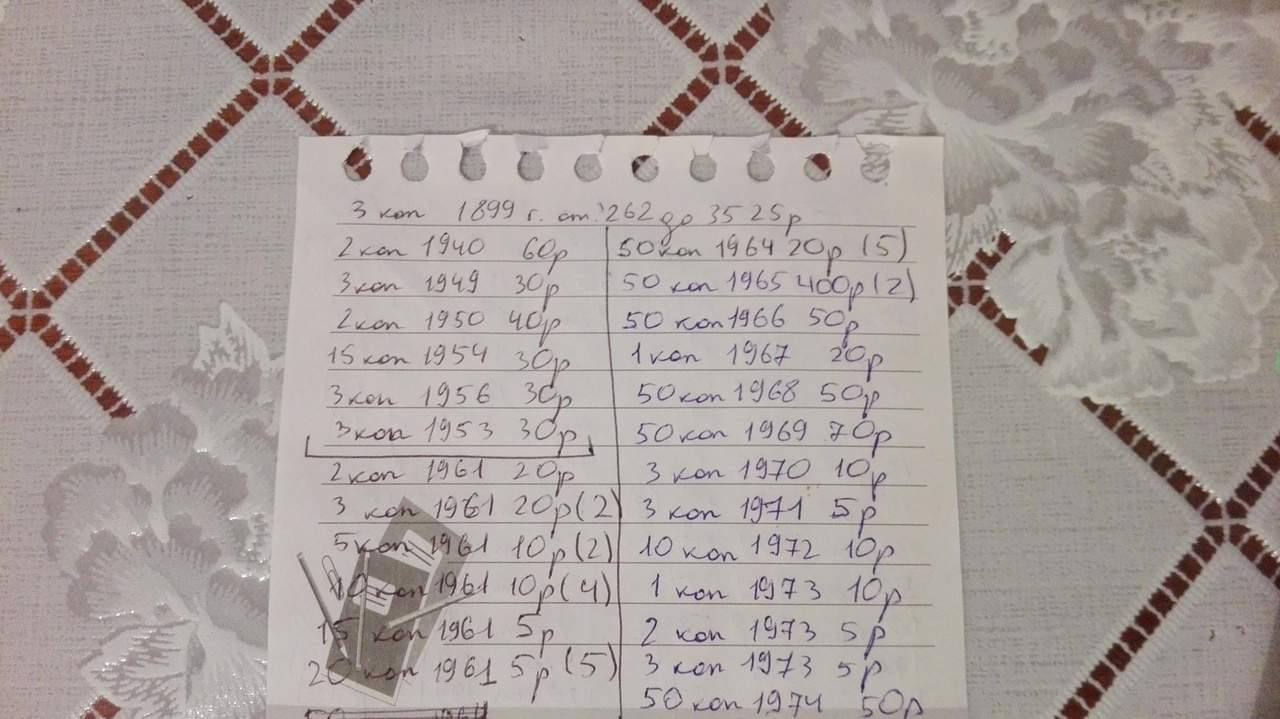 3 коп 1899 г. от 262 до 3525р
2 коп 1940 60р
3 коп 1949 30р
2 коп 1950 40р
15 коп 1954 30р
3 коп 1956 30р
3 коп 1953 30р
2 коп 1961 20р
3 коп 1961 20р (2)
5 коп 1961 10р (2)
10 коп 1961 10р (4)
15 коп 1961 5р
20 коп 1961 5р (5)
50 коп 1964 20р (5)
50 коп 1965 400р (2)
50 коп 1966 50р
1 коп 1967 20р
50 коп 1968 50р
50 коп 1969 70р
3 коп 1970 10р
3 коп 1971 5р
10 коп 1972 10р
1 коп 1973 10р
2 коп 1973 5р
3 коп 1973 5р
50 коп 1974 50р